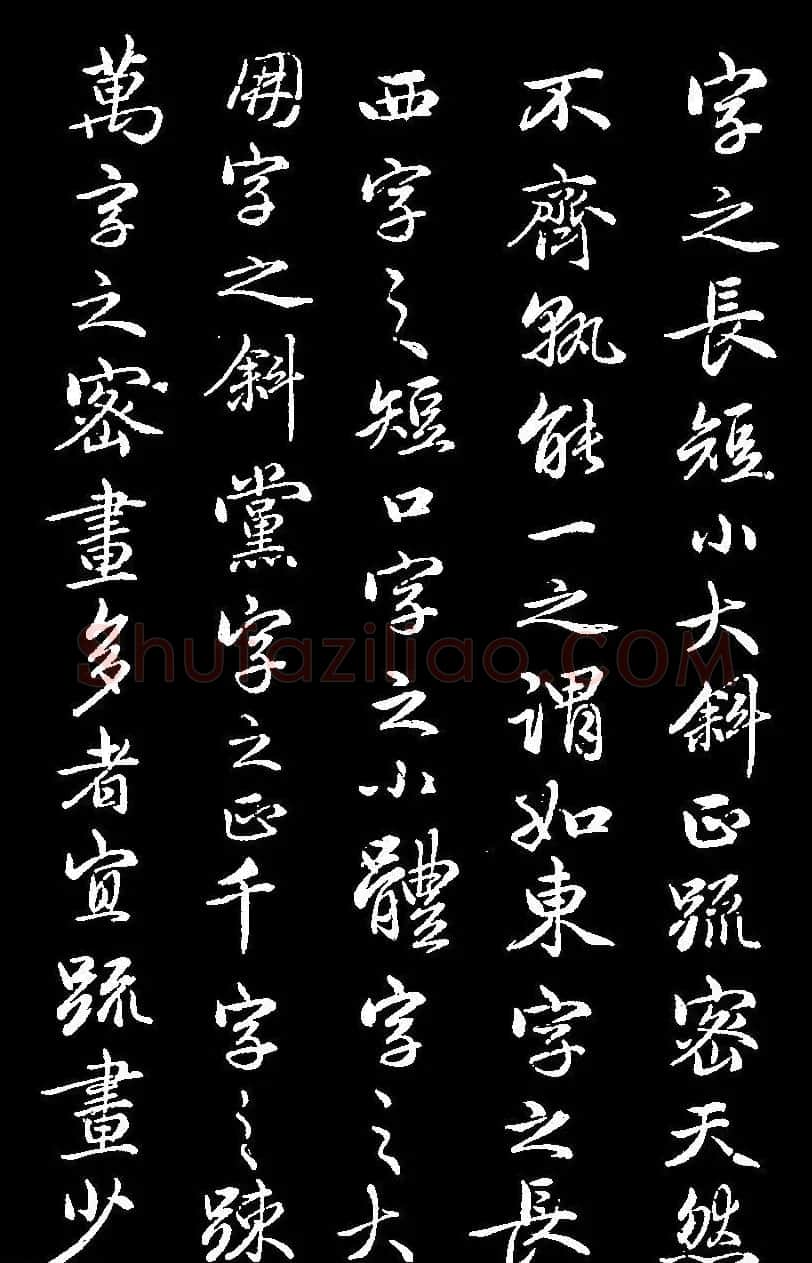 字之長短小大斜正疏密天然
不齊孰能一之謂如東字之長
西字之短口字之小體字之大
朋字之斜黨字之正千字之疎
萬字之密畫多者宜疏畫少
Shufaziliao.COM